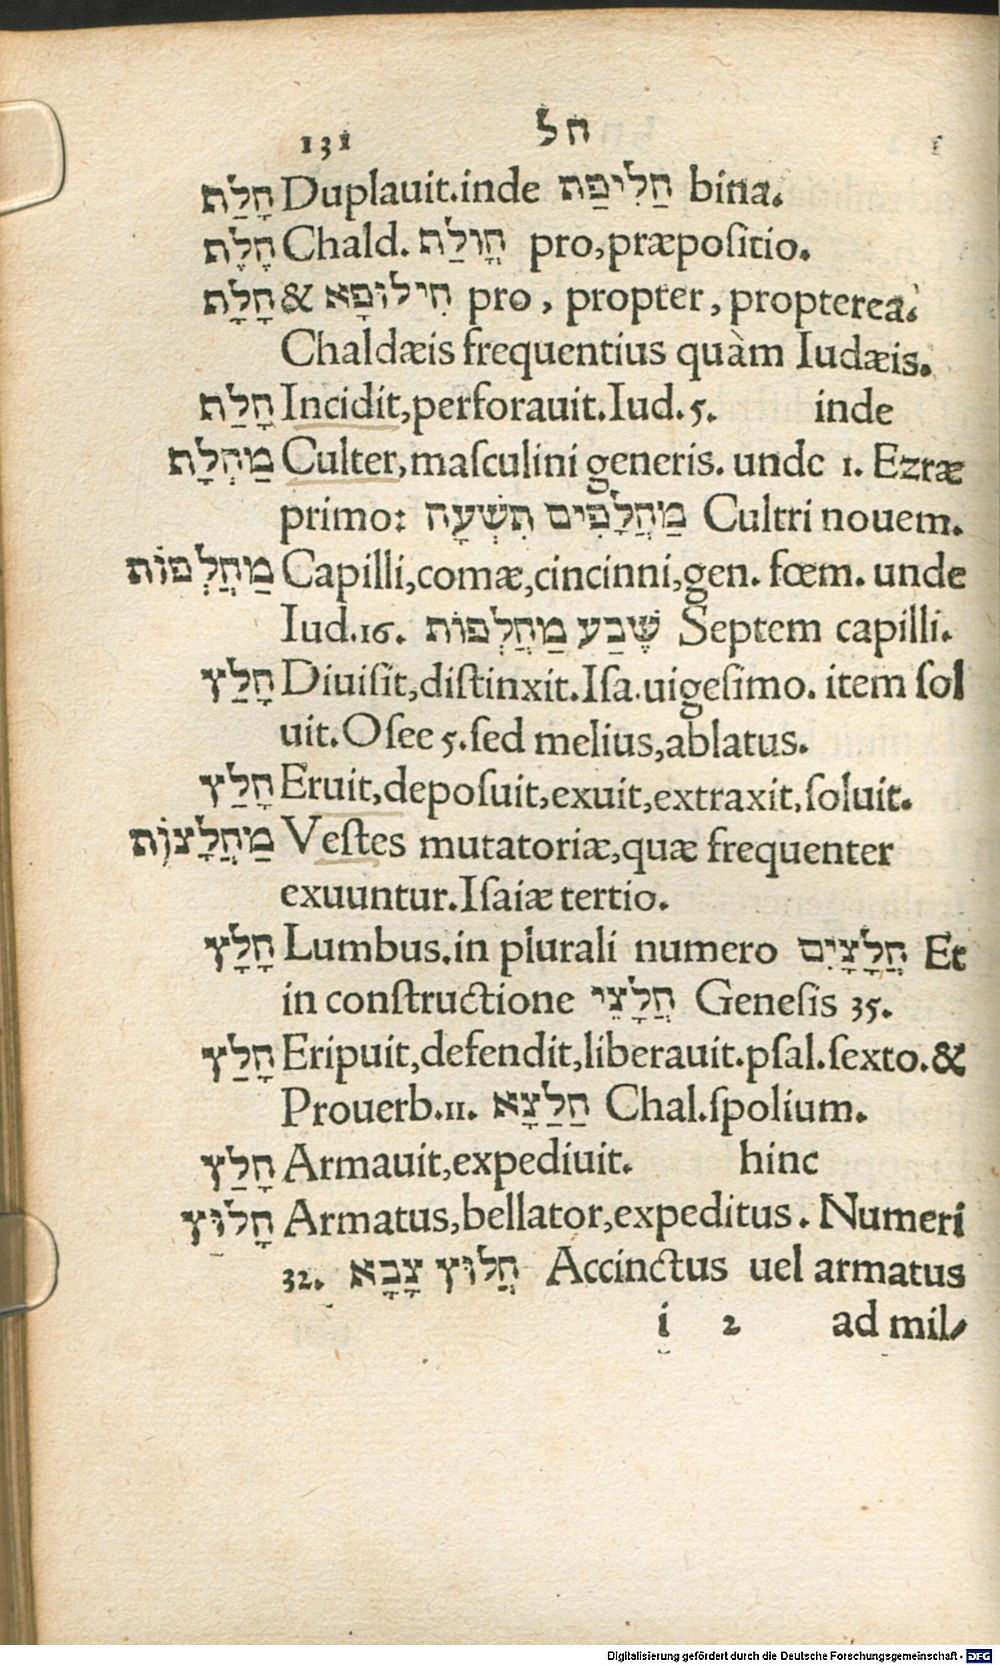 131 חל
חָלַת Duplauit.inde חַלִיפַת bina.
חֶלֶת Chald. חֳולַת pro,præpositio.
חָלָת & חִילוּפָא pro, propter, propterea.
Chaldæis frequentius quàm Iudæis.
חָלַת Incidit,perforauit.Iud.5. inde
מַחְלָת Culter,maſculini generis. unde 1. Ezræ
primo: מַחֲלָפִים תִשְׁעָה Cultri nouem.
מַחֲלְפוֹת Capilli,comæ,cincinni,gen. fœm. unde
Iud.16. שֶׁבַע מַחֲלְפוֹת Septem capilli.
חָלַץ Diuiſit,diſtinxit.Iſa.uigeſimo. item ſol
uit.Oſee 5.ſed melius,ablatus.
חָלַץ Eruit,depoſuit,exuit,extraxit,ſoluit.
מַחֲלָצוֹת Veſtes mutatoriæ,quæ frequenter
exuuntur.Iſaiæ tertio.
חָלָץ Lumbus.in plurali numero חֲלָצָיִם Et
in conſtructione חֲלָצֵי Geneſis 35.
חָלַץ Eripuit,defendit,liberauit.pſal.ſexto.&
Prouerb.11. חַלַצָא Chal.ſpolium.
חָלַץ Armauit,expediuit. hinc
חָלוּץ Armatus,bellator,expeditus. Numeri
32. חֲלוּץ צָבָא Accinctus uel armatus
i 2 ad mil⸗
Digitalisierung gefördert durch die Deutsche Forschungsgemeinschaft - DFG